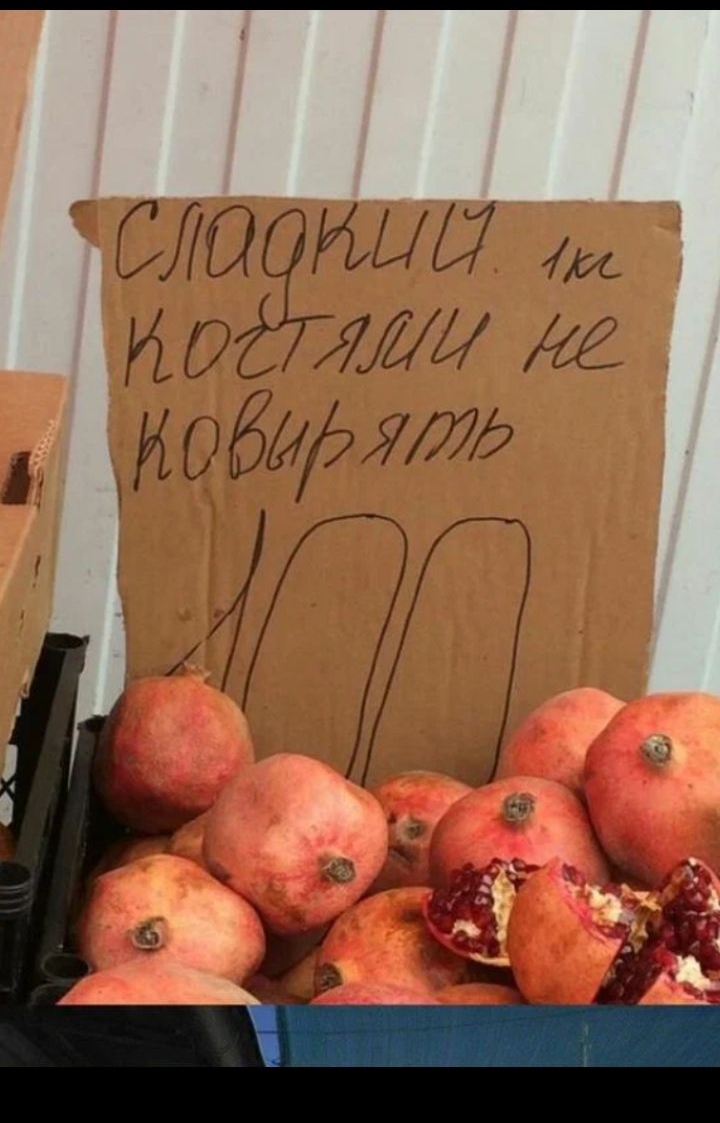 сладкий. 1кг
костями не
ковырять
100